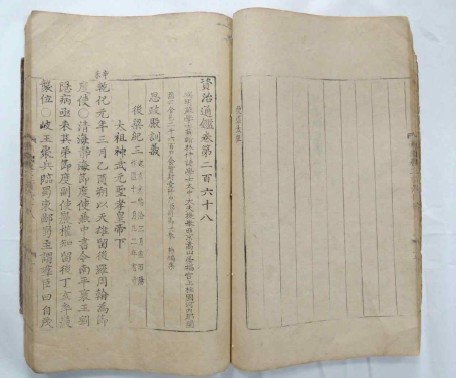 資治通鑑卷第二百六十八
端明殿學士兼翰林侍讀學士太中大夫提舉西京嵩山崇福宮上柱國河內郡開
國公食邑二千六百戶食實封壹
思政殿訓義
後梁紀三
太祖神武元聖孝皇帝下
乾化元年三月乙酉朔以天雄留後羅周翰爲節
度使○清海靜海節度使兼中書令南平襄王劉
隱病亟表其弟節度副使巖權知留後丁亥卒巖
襲位○岐王聚兵臨蜀東鄙蜀主謂群臣曰自茂